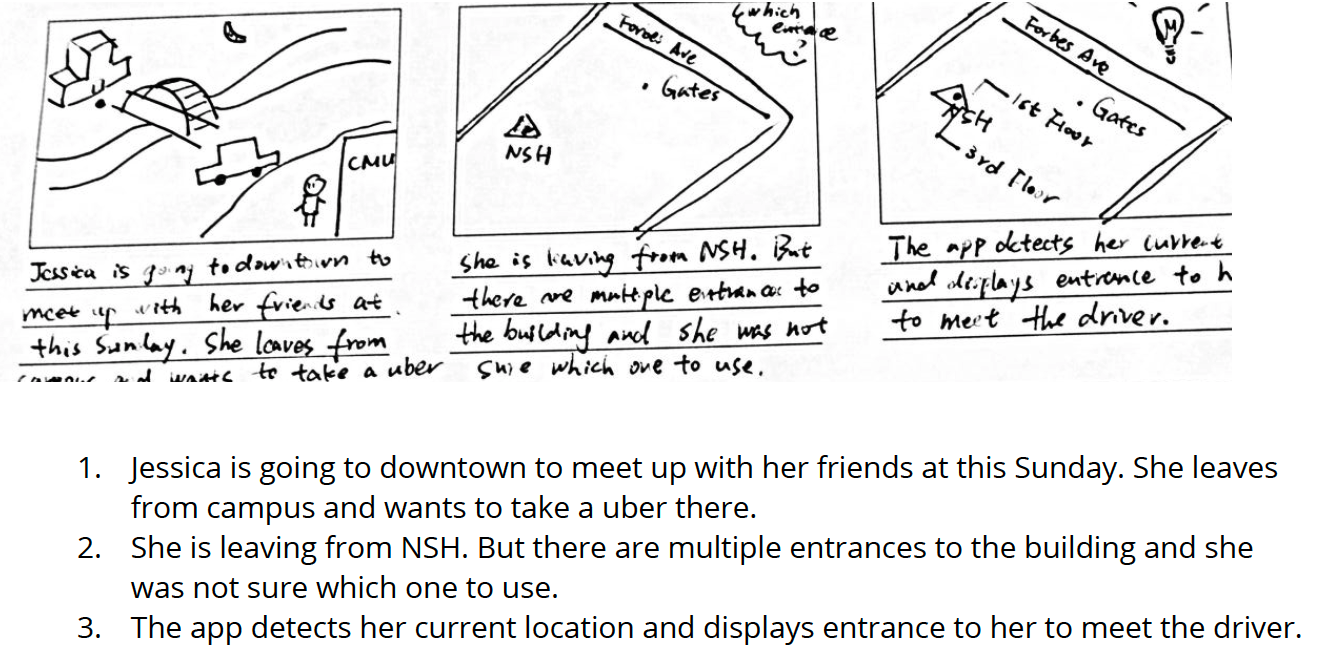 CMU
Jessica is going to downtown to
meet up with her friends at
this Sunday. She leaves from
campus and wants to take a uber
which
entrance
?
Forbes Ave
Gates
NSH
She is leaving from NSH. But
there are multiple entrance to
the building and she was not
sure which one to use.
Forbes Ave
Gates
1st Floor
NSH
3rd Floor
The app detects her current
and displays entrance to h
to meet the driver.
1. Jessica is going to downtown to meet up with her friends at this Sunday. She leaves
from campus and wants to take a uber there.
2. She is leaving from NSH. But there are multiple entrances to the building and she
was not sure which one to use.
3. The app detects her current location and displays entrance to her to meet the driver.